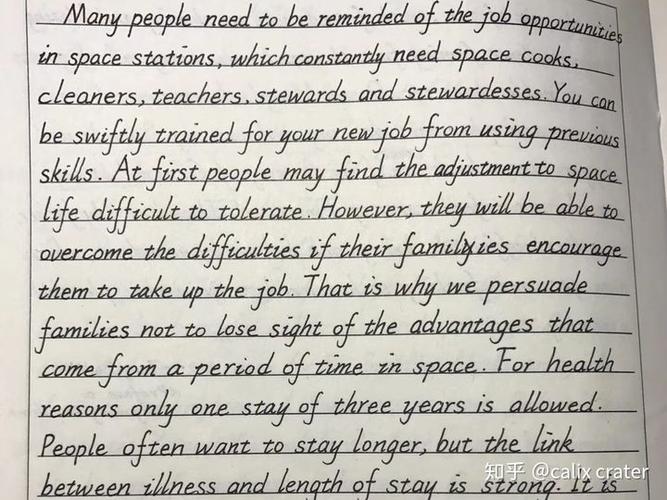 Many people need to be reminded of the job opportunities
in space stations, which constantly need space cooks,
cleaners, teachers, stewards and stewardesses. You can
be swiftly trained for your new job from using previous
skills. At first people may find the adjustment to space
life difficult to tolerate. However, they will be able to
overcome the difficulties if their families encourage
them to take up the job. That is why we persuade
families not to lose sight of the advantages that
come from a period of time in space. For health
reasons only one stay of three years is allowed.
People often want to stay longer, but the link
between illness and length of stay is strong. It is
知乎 @calix crater